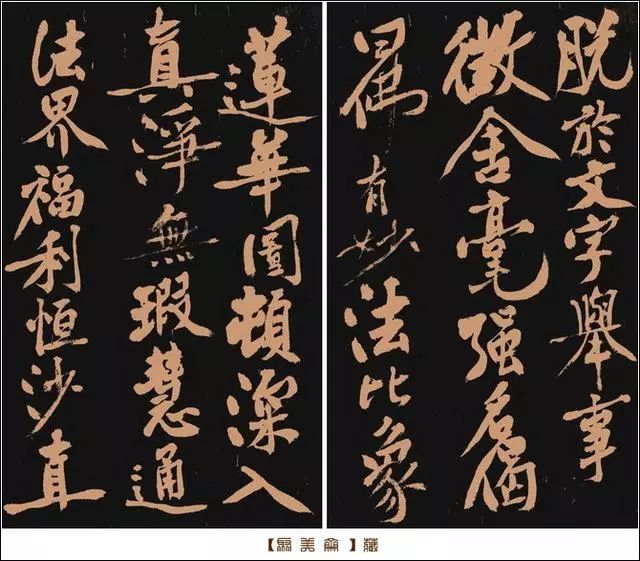 脱於文字舉事
徵含毫强名偈
曰佛有妙法比象
蓮華圓頓深入
真淨無瑕慧通
法界福利恒沙直